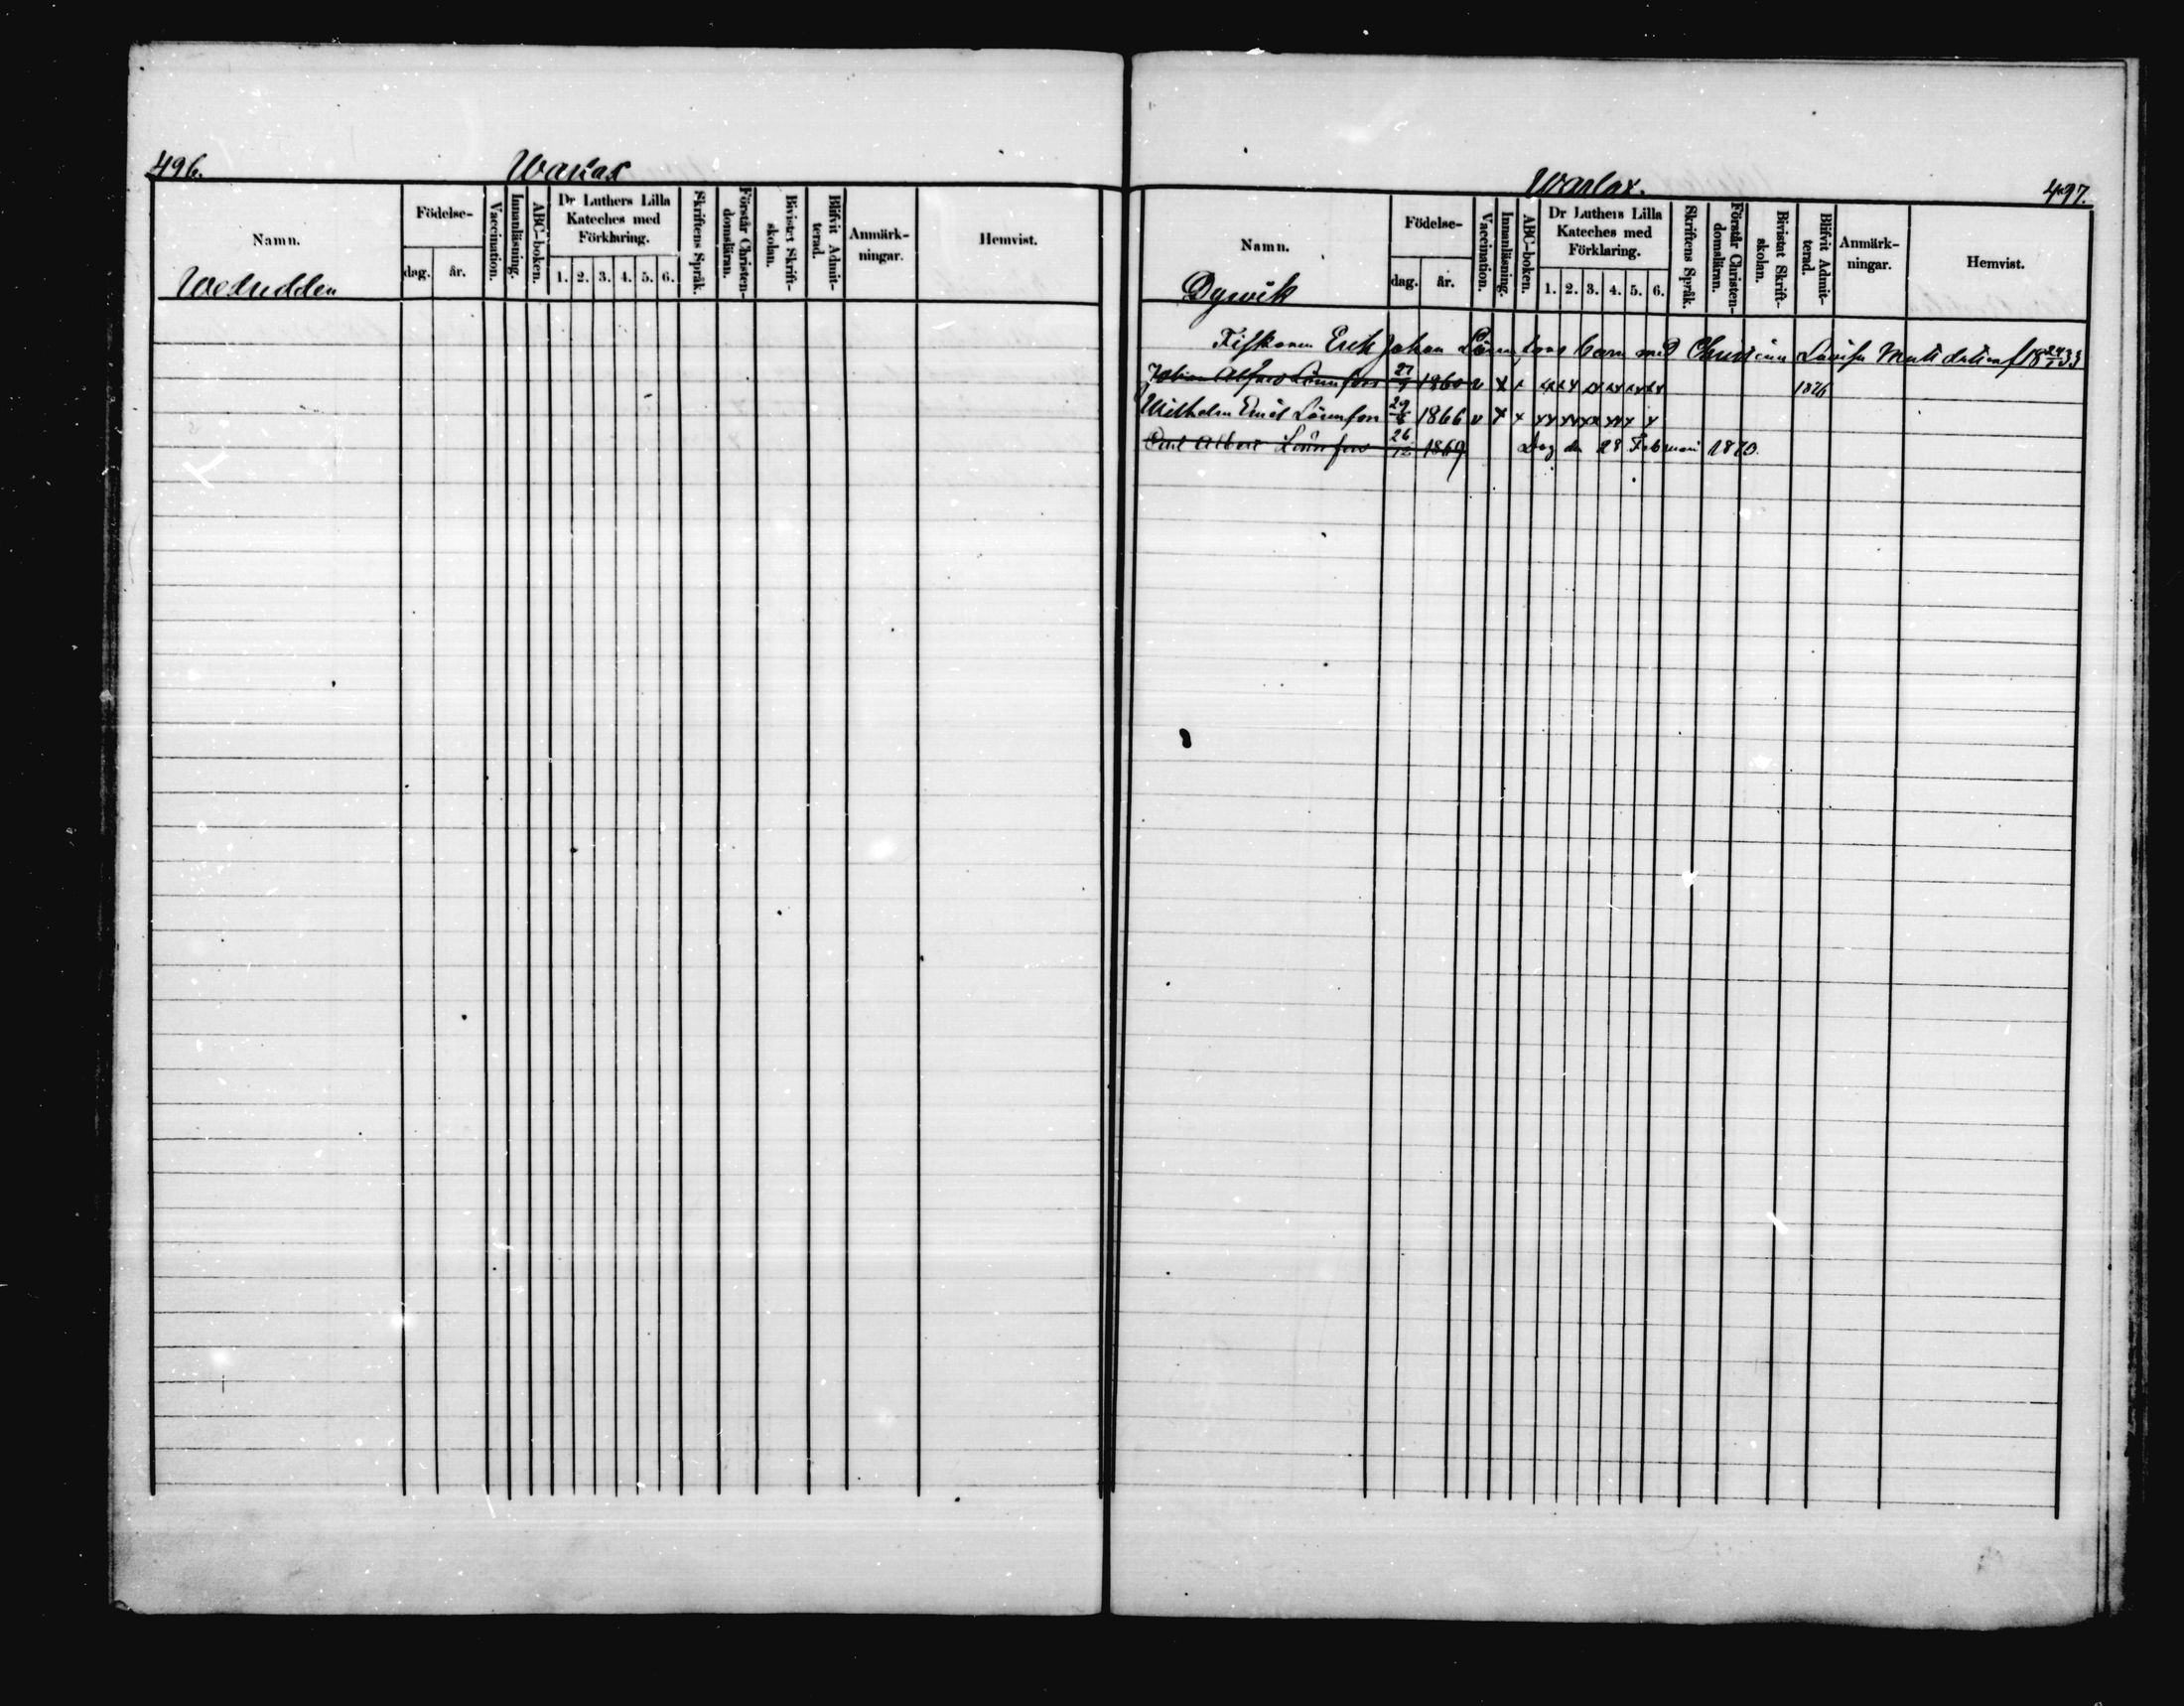 496.
Warlax
Namn.
Födelse-
dag. år.
Vaccination.
Innanläsning.
ABC-boken.
Dr Luthers Lilla
Kateches med
Förklaring.
1. 2. 3. 4. 5. 6.
Skriftens Språk.
Förstår Christen-
domsläran.
Bivistat Skrift-
skolan.
Blifvit Admit-
terad.
Anmärk-
ningar.
Hemvist.
Wedudden
Warlax.
497.
Namn.
Födelse-
dag. år.
Vaccination.
Innanläsning.
ABC-boken.
Dr Luthers Lilla
Kateches med
Förklaring.
1. 2. 3. 4. 5. 6.
Skriftens Språk.
Förstår Christen-
domsläran.
Bivistat Skrift-
skolan.
Blifvit Admit-
terad.
Anmärk-
ningar.
Hemvist.
Dywik
Fiskaren Erik Johan Lönnfors barn med Christina Lovisa
Johan Alfred Lönnfors 27/9 1860 v x x 1876
Wilhelm Emil Lönnfors 29/8 1866 v x x
Carl Albert Lönnfors 26/12 1869 Dog den 28 Februari 1870.